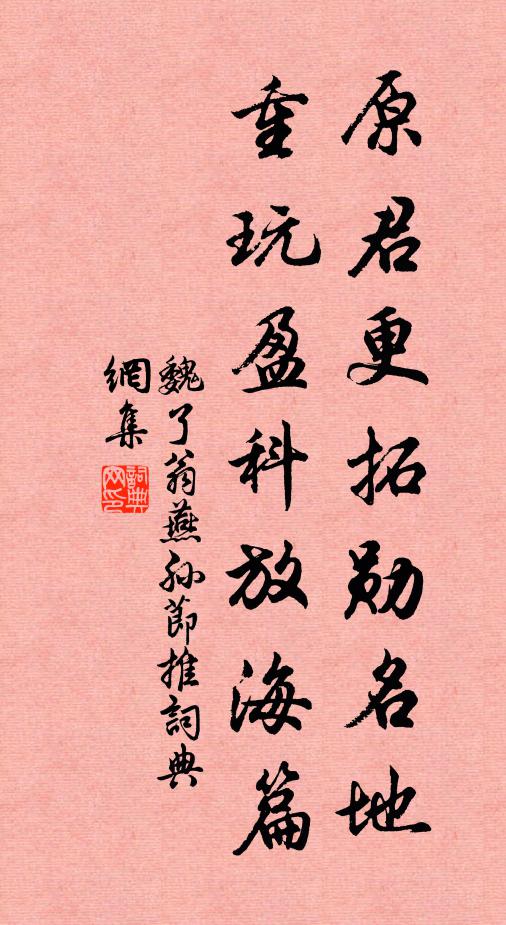 原君更拓勋名地
重玩盈科放海篇
魏了翁燕孙节推詞典
網集
詞典網印